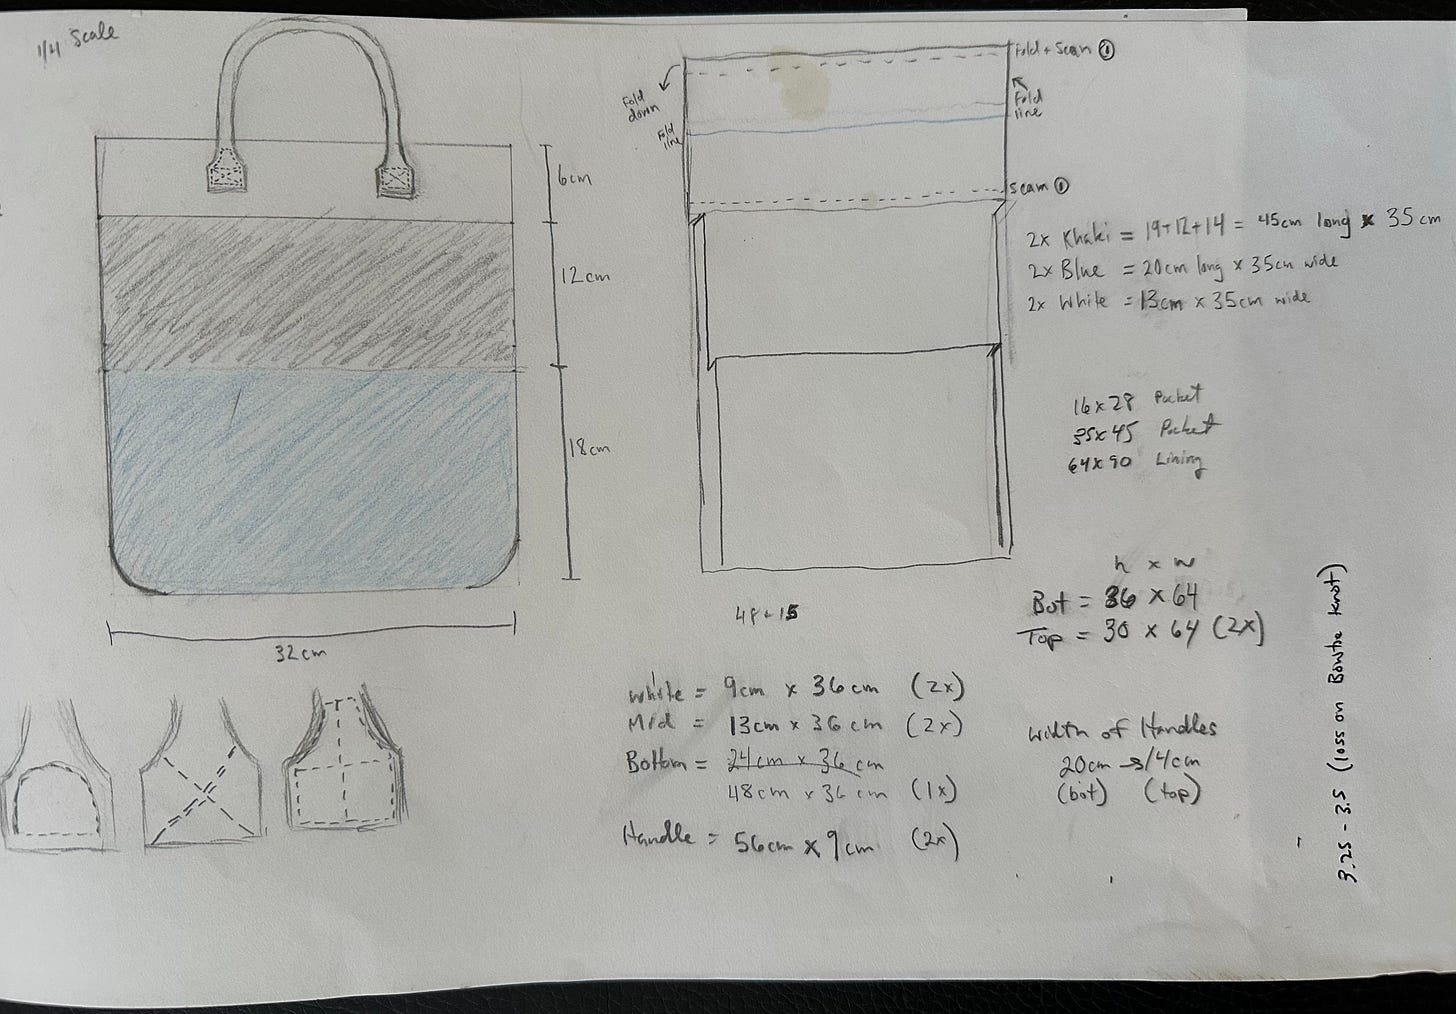 1/4 Scale
6cm
12cm
18cm
32cm
Fold + Seam ①
Fold down
Fold line
Fold line
Seam ①
2x Khaki = 19+12+14 = 45cm long x 35 cm
2x Blue = 20cm long x 35cm wide
2x White = 13cm x 35cm wide
16x28 Pocket
35x45 Pocket
64x90 Lining
h x w
Bot = 36 x 64
Top = 30 x 64 (2x)
48 + 15
White = 9cm x 36cm (2x)
Mid = 13cm x 36cm (2x)
Bottom = 24cm x 36cm
48cm x 36cm (1x)
Handle = 56cm x 9cm (2x)
Width of Handles
20cm → 14cm
(bot) (top)
3.25 - 3.5 (loss on Bowtie knot)